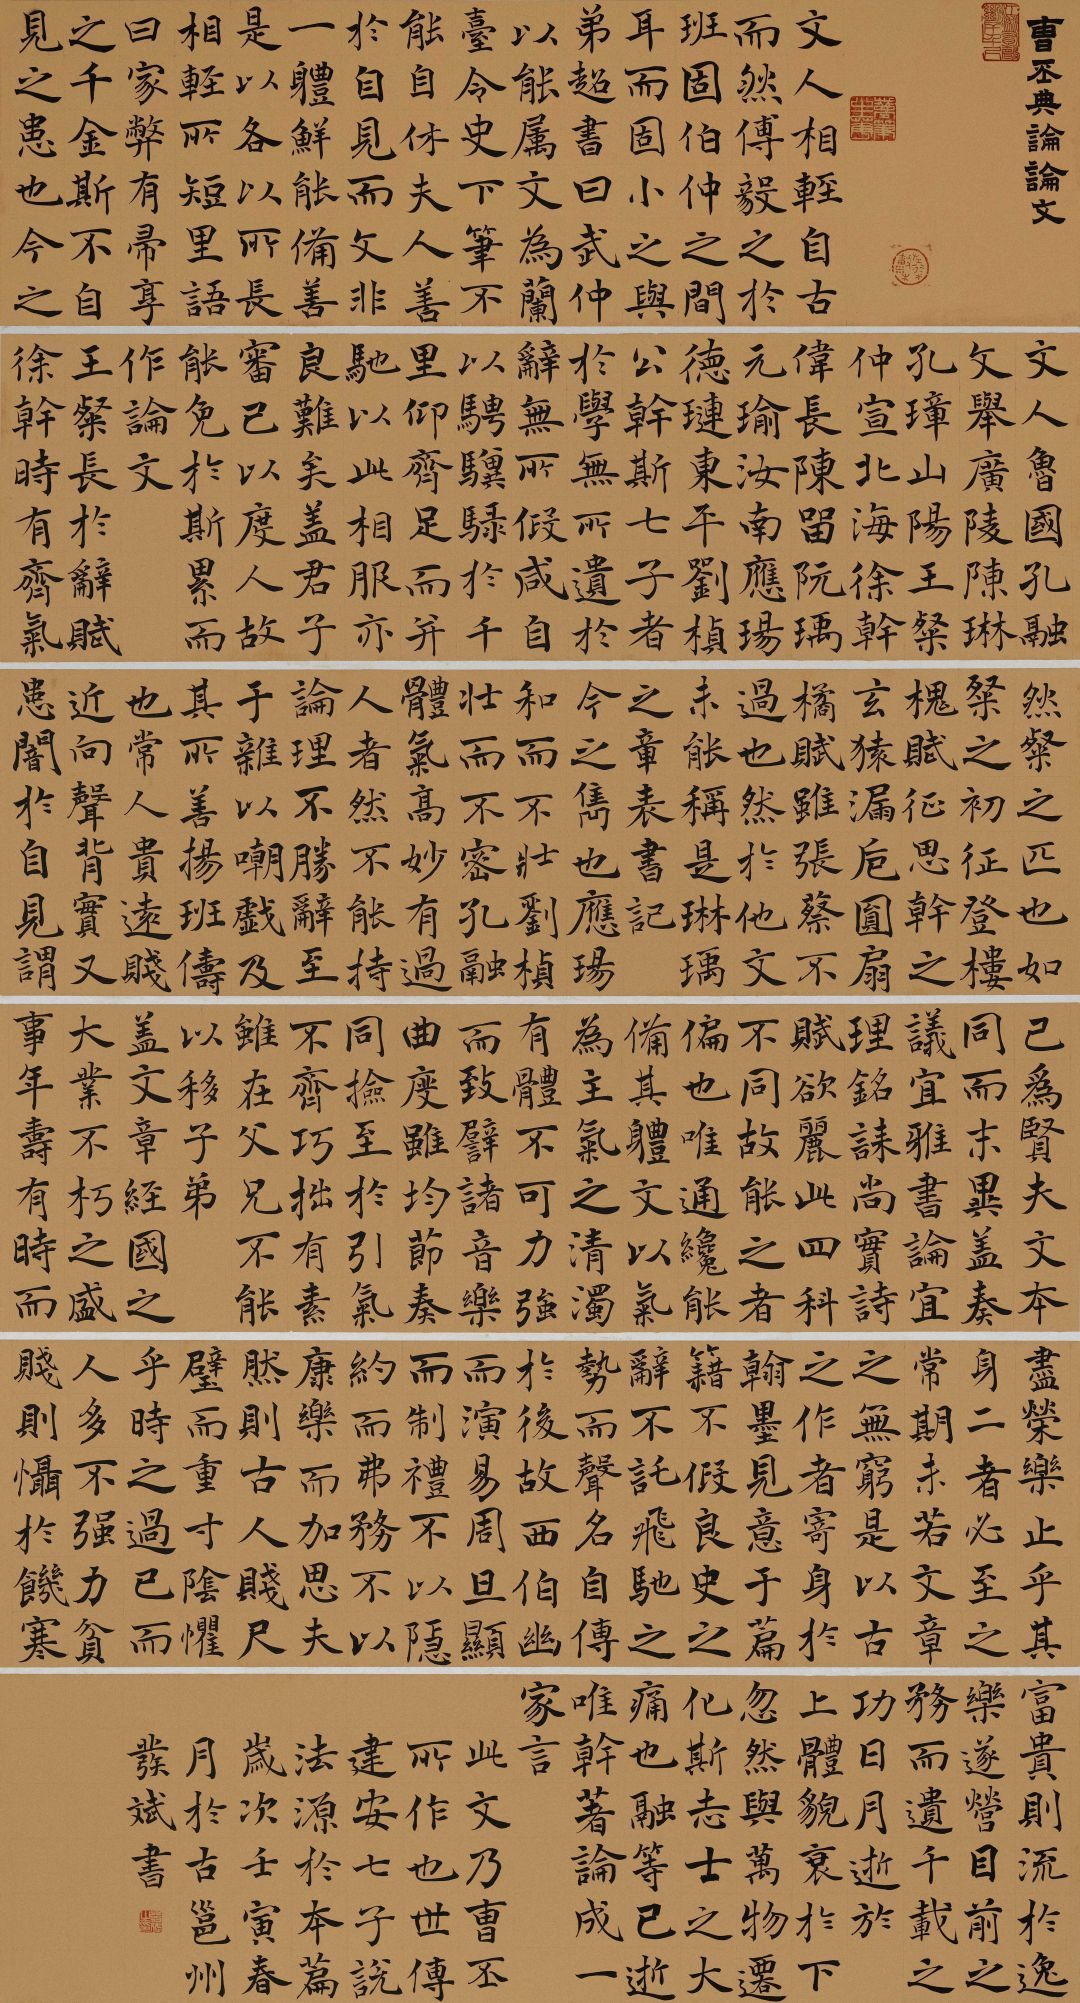 曹丕典論論文
文人相輕自古
而然傅毅之於
班固伯仲之間
耳而固小之與
弟超書曰武仲
以能属文為蘭
臺令史下筆不
能自休夫人善
於自見而文非
一體鮮能備善
是以各以所長
相輕所短里語
曰家弊有帚享
之千金斯不自
見之患也今之
文人魯國孔融
文舉廣陵陳琳
孔璋山陽王粲
仲宣北海徐幹
偉長陳留阮瑀
元瑜汝南應瑒
德璉東平劉楨
公幹斯七子者
於學無所遺於
辭無所假咸自
以騁驥騄於千
里仰齊足而并
馳以此相服亦
良難矣盖君子
審己以度人故
能免於斯累而
作論文
王粲長於辭賦
徐幹時有齊氣
然粲之匹也如
粲之初征登樓
槐賦征思幹之
玄猿漏卮圓扇
橘賦雖張蔡不
過也然於他文
未能稱是琳瑀
之章表書記
今之雋也應瑒
和而不壯劉楨
壯而不密孔融
體氣高妙有過
人者然不能持
論理不勝辭至
于雜以嘲戲及
其所善揚班儔
也常人貴遠賤
近向聲背實又
患闇於自見謂
己爲賢夫文本
同而末異盖奏
議宜雅書論宜
理銘誄尚實詩
賦欲麗此四科
不同故能之者
偏也唯通纔能
備其體文以氣
為主氣之清濁
有體不可力强
而致譬諸音樂
曲度雖均節奏
同撿至於引氣
不齊巧拙有素
雖在父兄不能
以移子弟
盖文章經國之
大業不朽之盛
事年壽有時而
盡榮樂止乎其
身二者必至之
常期未若文章
之無窮是以古
之作者寄身於
翰墨見意于篇
籍不假良史之
辭不託飛馳之
勢而聲名自傳
於後故西伯幽
而演易周旦顯
而制禮不以隱
約而弗務不以
康樂而加思夫
然則古人賤尺
璧而重寸陰懼
乎時之過已而
人多不强力貧
賤則懾於饑寒
富貴則流於逸
樂遂營目前之
務而遺千載之
功日月逝於
上體貌衰於下
忽然與萬物遷
化斯志士之大
痛也融等已逝
唯幹著論成一
家言
此文乃曹丕
所作也世傳
建安七子說
法源於本篇
歲次壬寅春
月於古邕州
發斌書